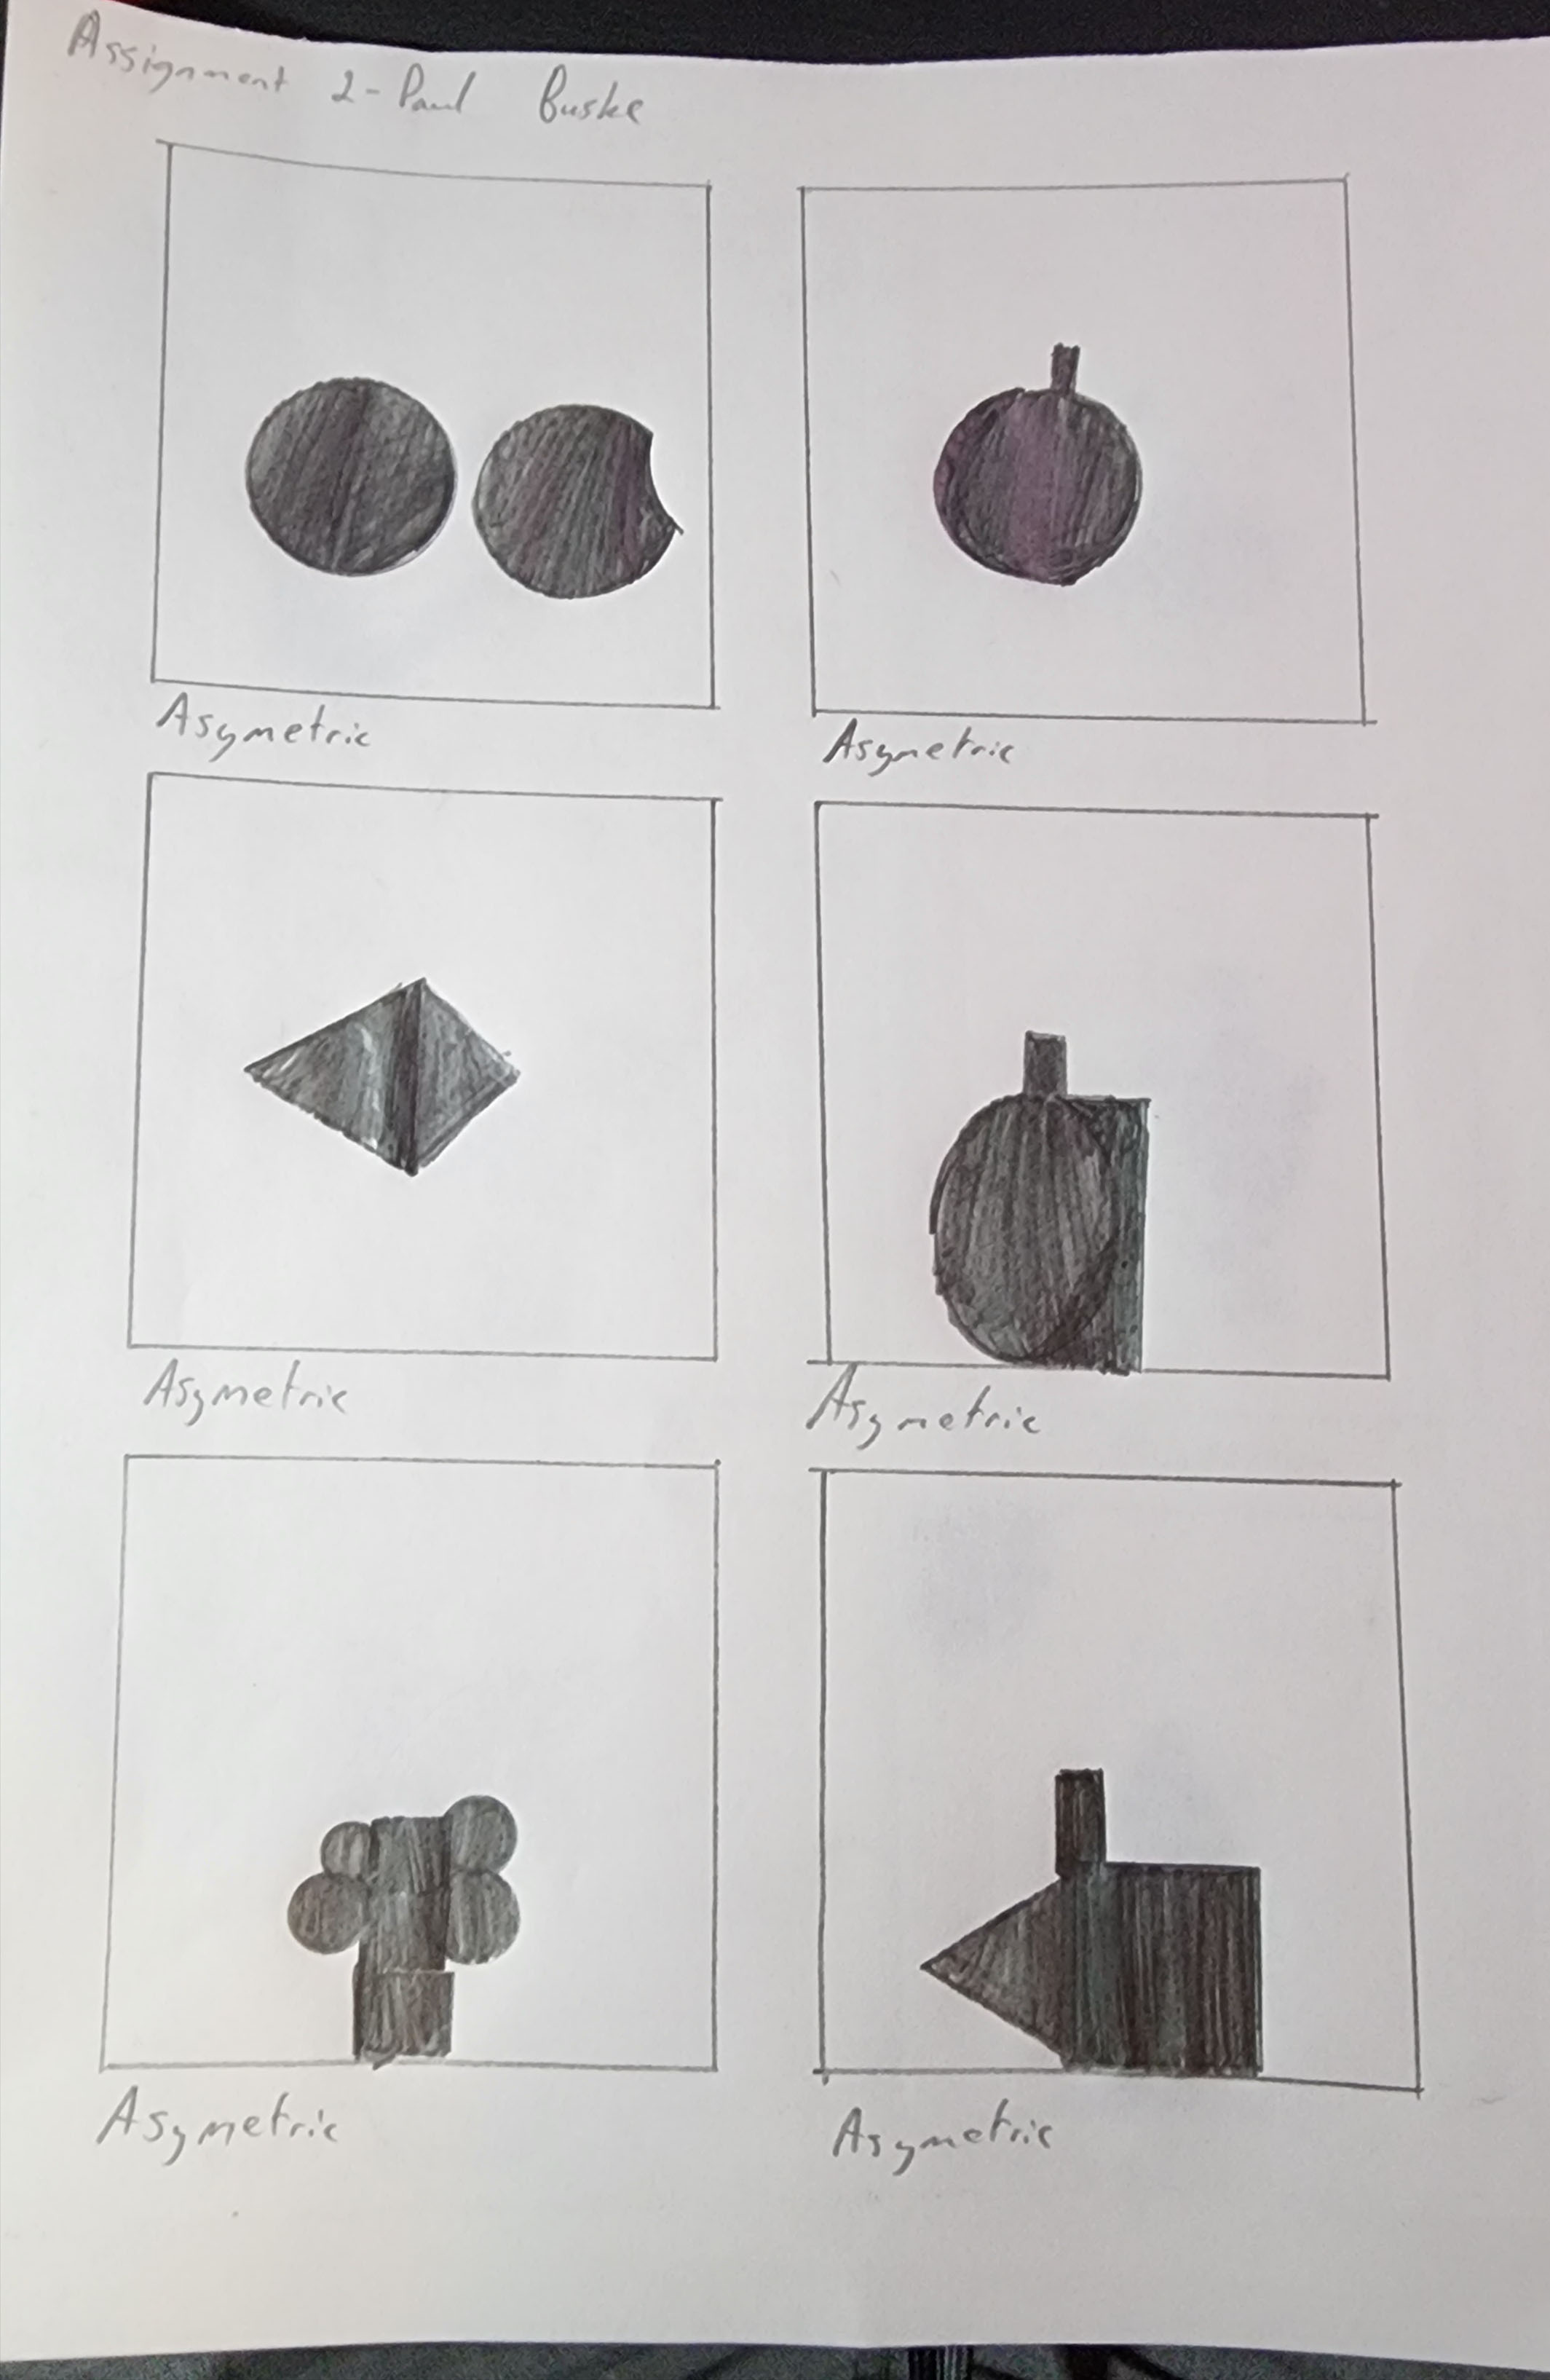 Assignment 2-Paul Buske
Asymetric
Asymetric
Asymetric
Asymetric
Asymetric
Asymetric